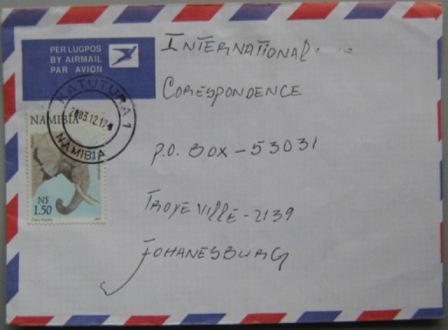 PER LUGPOS
BY AIRMAIL
PAR AVION
INTERNATIONAL
CORESPONDENCE
P.O. BOX - 53031
TROYEVILLE - 2139
JOHANESBURG
KATUTURA 1
NAMIBIA
NAMIBIA
N$
1.50